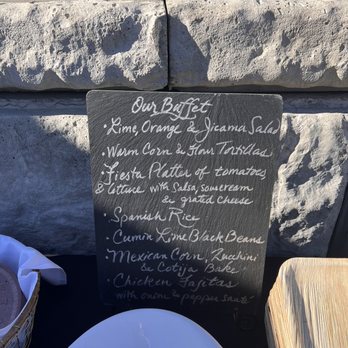 Our Buffet
• Lime, Orange & Jicama Salad
• Warm Corn & Flour Tortillas
• Fiesta Platter of tomatoes
& lettuce with Salsa, sourcream
& grated cheese
• Spanish Rice
• Cumin Lime Black Beans
• Mexican Corn, Zucchini
& Cotija Bake
• Chicken Fajitas
with onion & pepper sauté